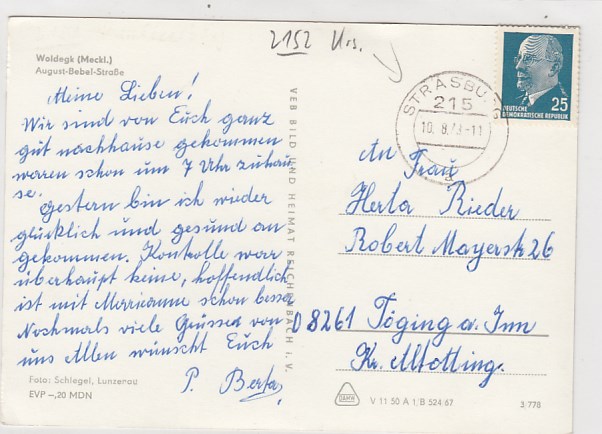 2152 Urs.
Woldegk (Meckl.)
August-Bebel-Straße
Meine Lieben!
Wir sind von Euch ganz
gut nachhause gekommen
waren schon um 7 Uhr zuhau
se.
Gestern bin ich wieder
glücklich und gesund an
gekommen. Kontrolle war
überhaupt keine, hoffendlich
ist mit Merrieanne schon besser
Nochmals viele Grüssed von
uns Allen wünscht Euch
P. Berta
Foto: Schlegel, Lunzenau
EVP –,20 MDN
VEB BILD UND HEIMAT REICHENBACH i. V.
STRASBURG
215
10. 8.73-11
a
DEUTSCHE
DEMOKRATISCHE REPUBLIK
25
An Frau
Herta Rieder
Robert Mayerstr 26
D 8261 Töging a. Inn
Kr. Altötting.
V 11 50 A 1/B 524/67
3/778